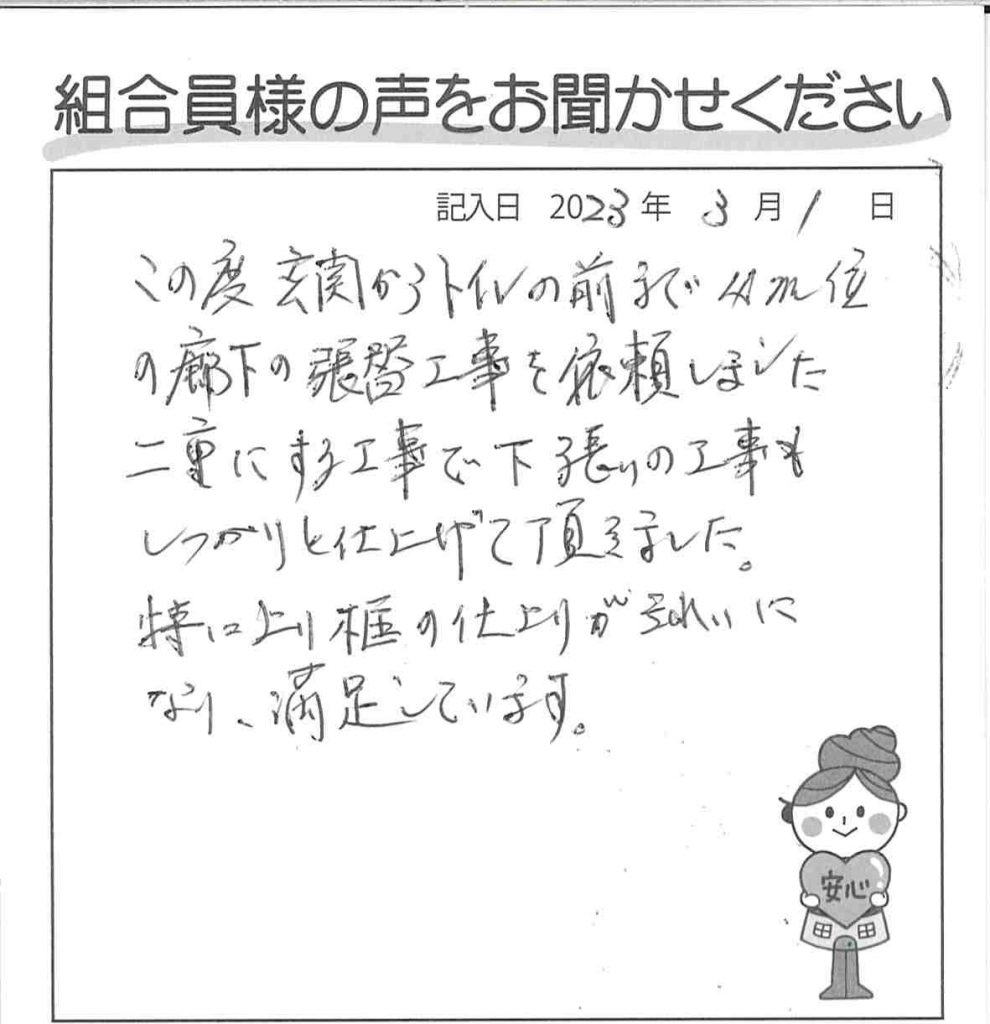 組合員様の声をお聞かせください
記入日 2023年 3月 1日
この度 玄関からトイレの前まで 4m位
の廊下の張替工事を依頼しました
二重にする工事で下張りの工事も
しっかりと仕上げて頂きました。
特に上り框の仕上りがきれいに
なり、満足しています。
安心